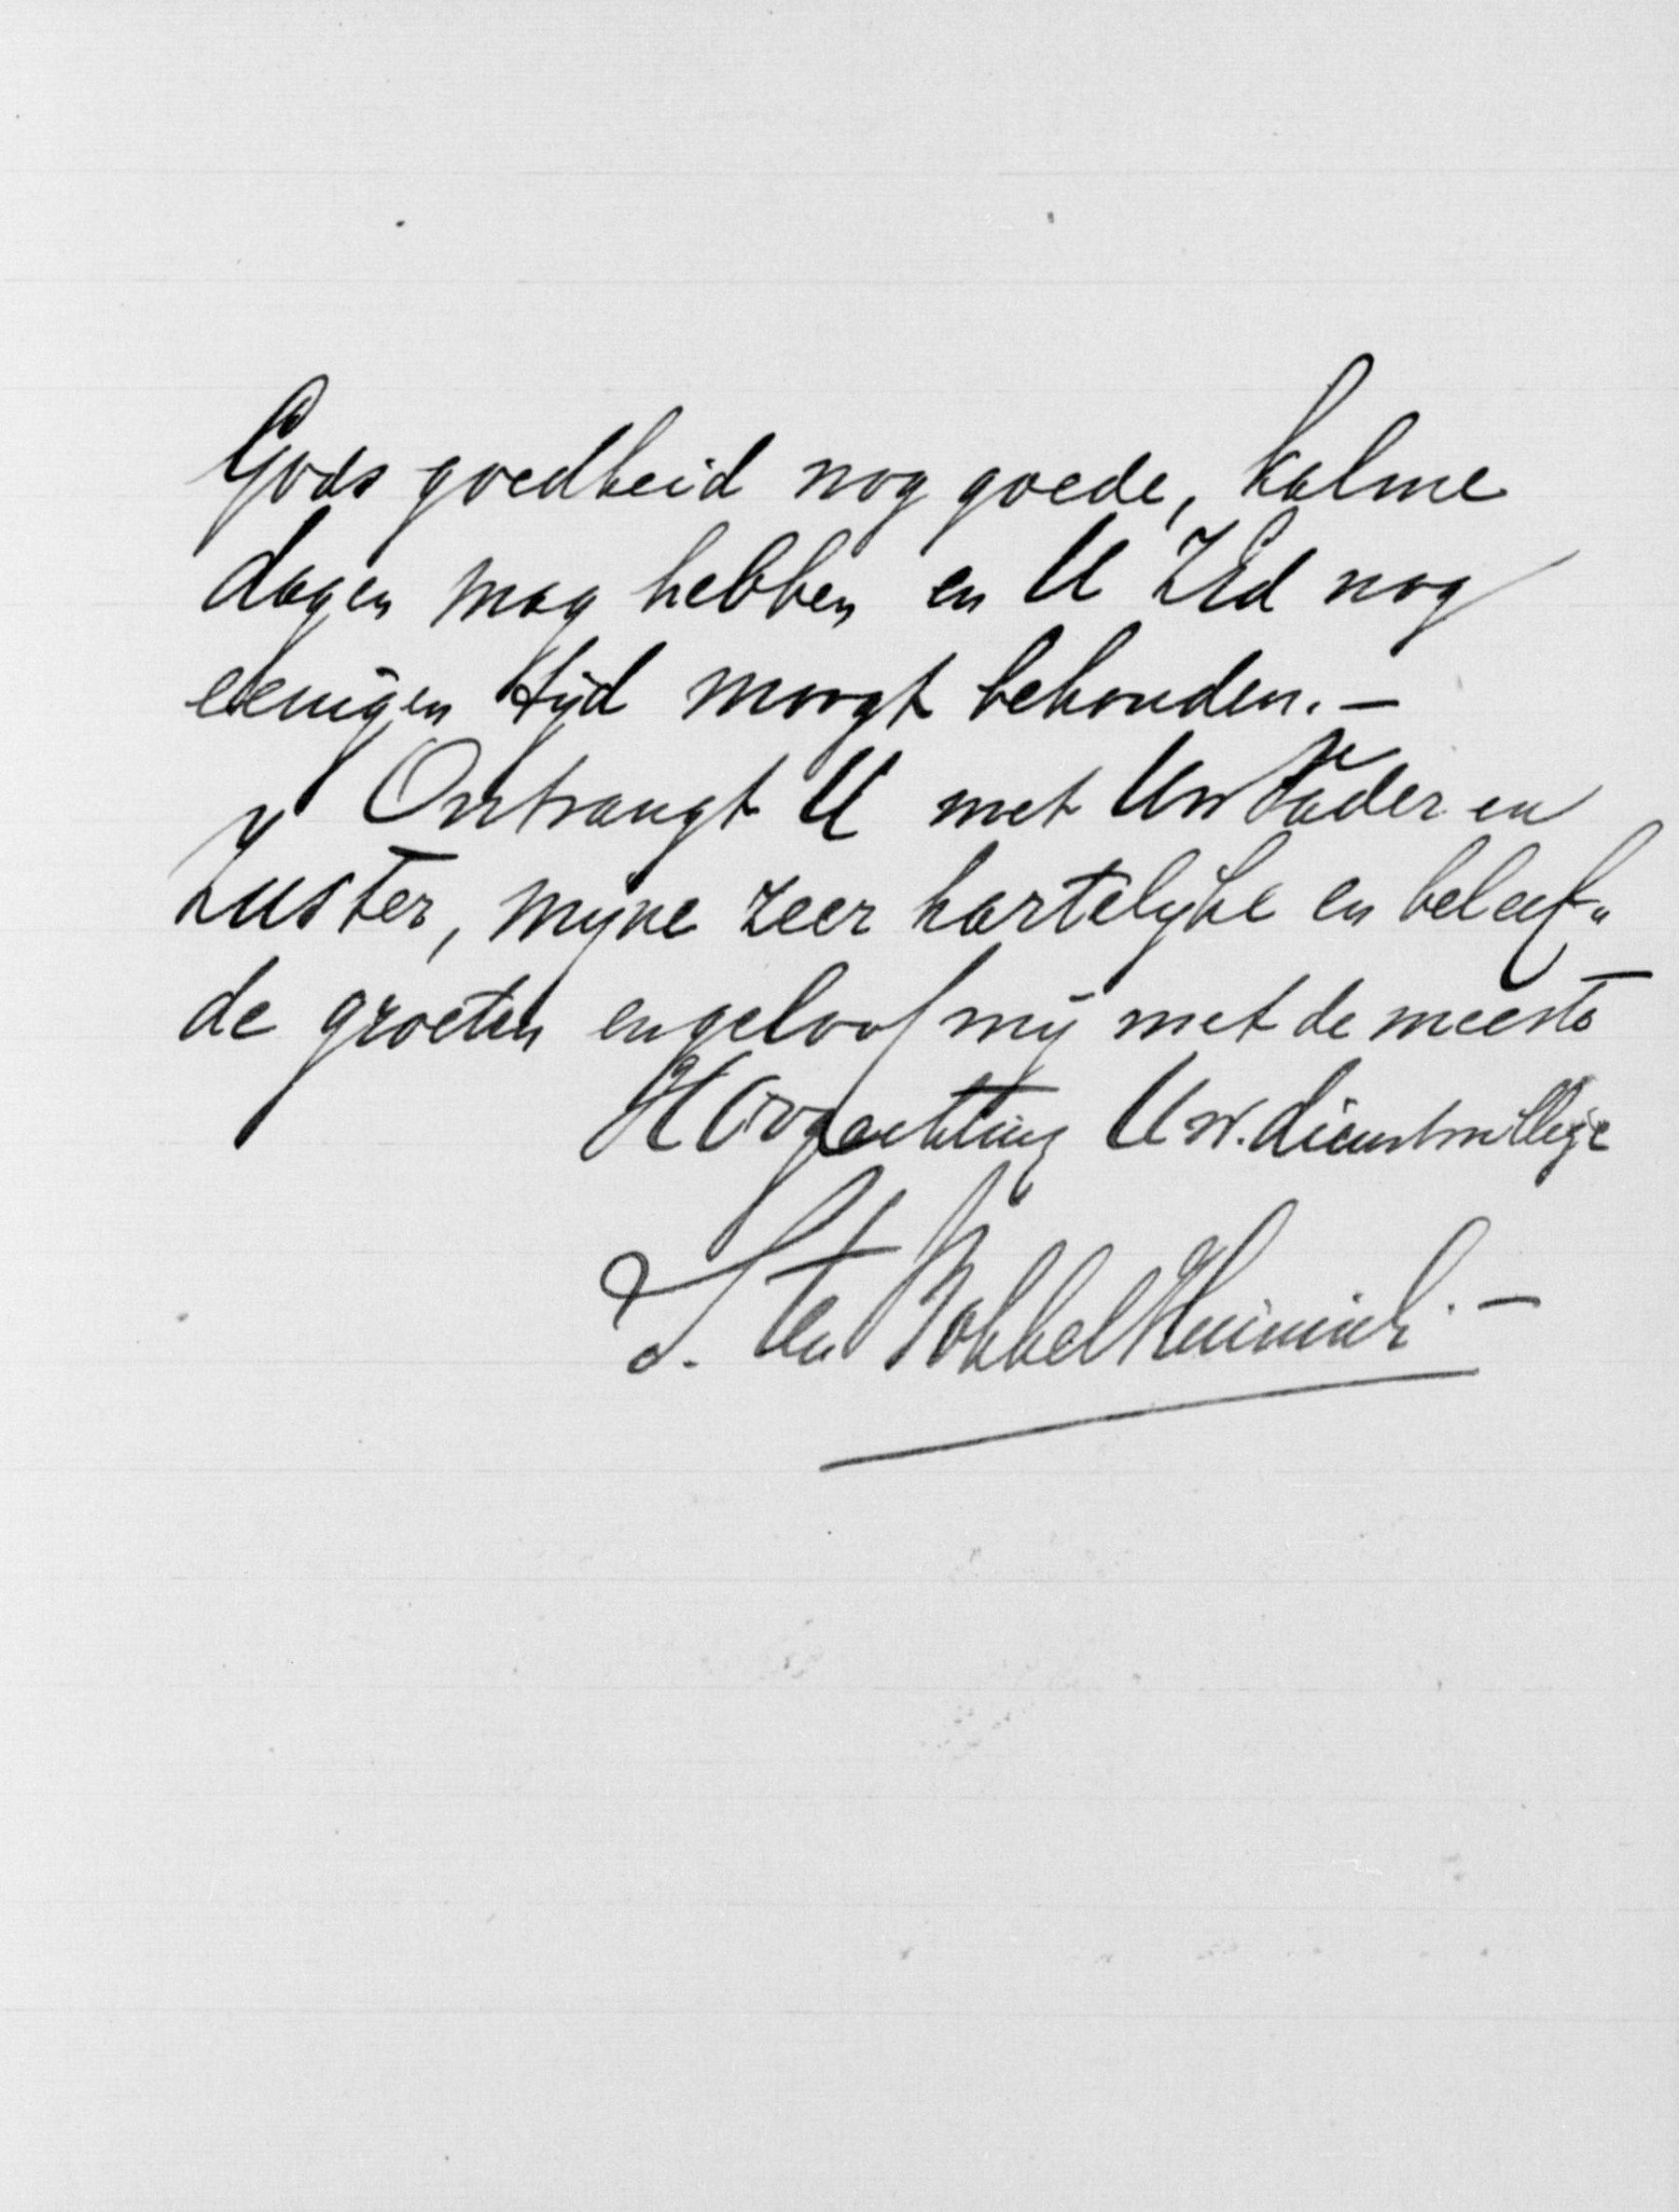 Gods goedheid nog goede, kalme
dagen mag hebben en U ZEd nog
eenigen tijd moogt behouden. —
Ontvangt U met Uw Vader en
Zuster, mijne zeer hartelijke en beleef„
de groeten en geloof mij met de meeste
HOogachting Uw. dienstwillige
S. Ten Bokkel Huinink. —